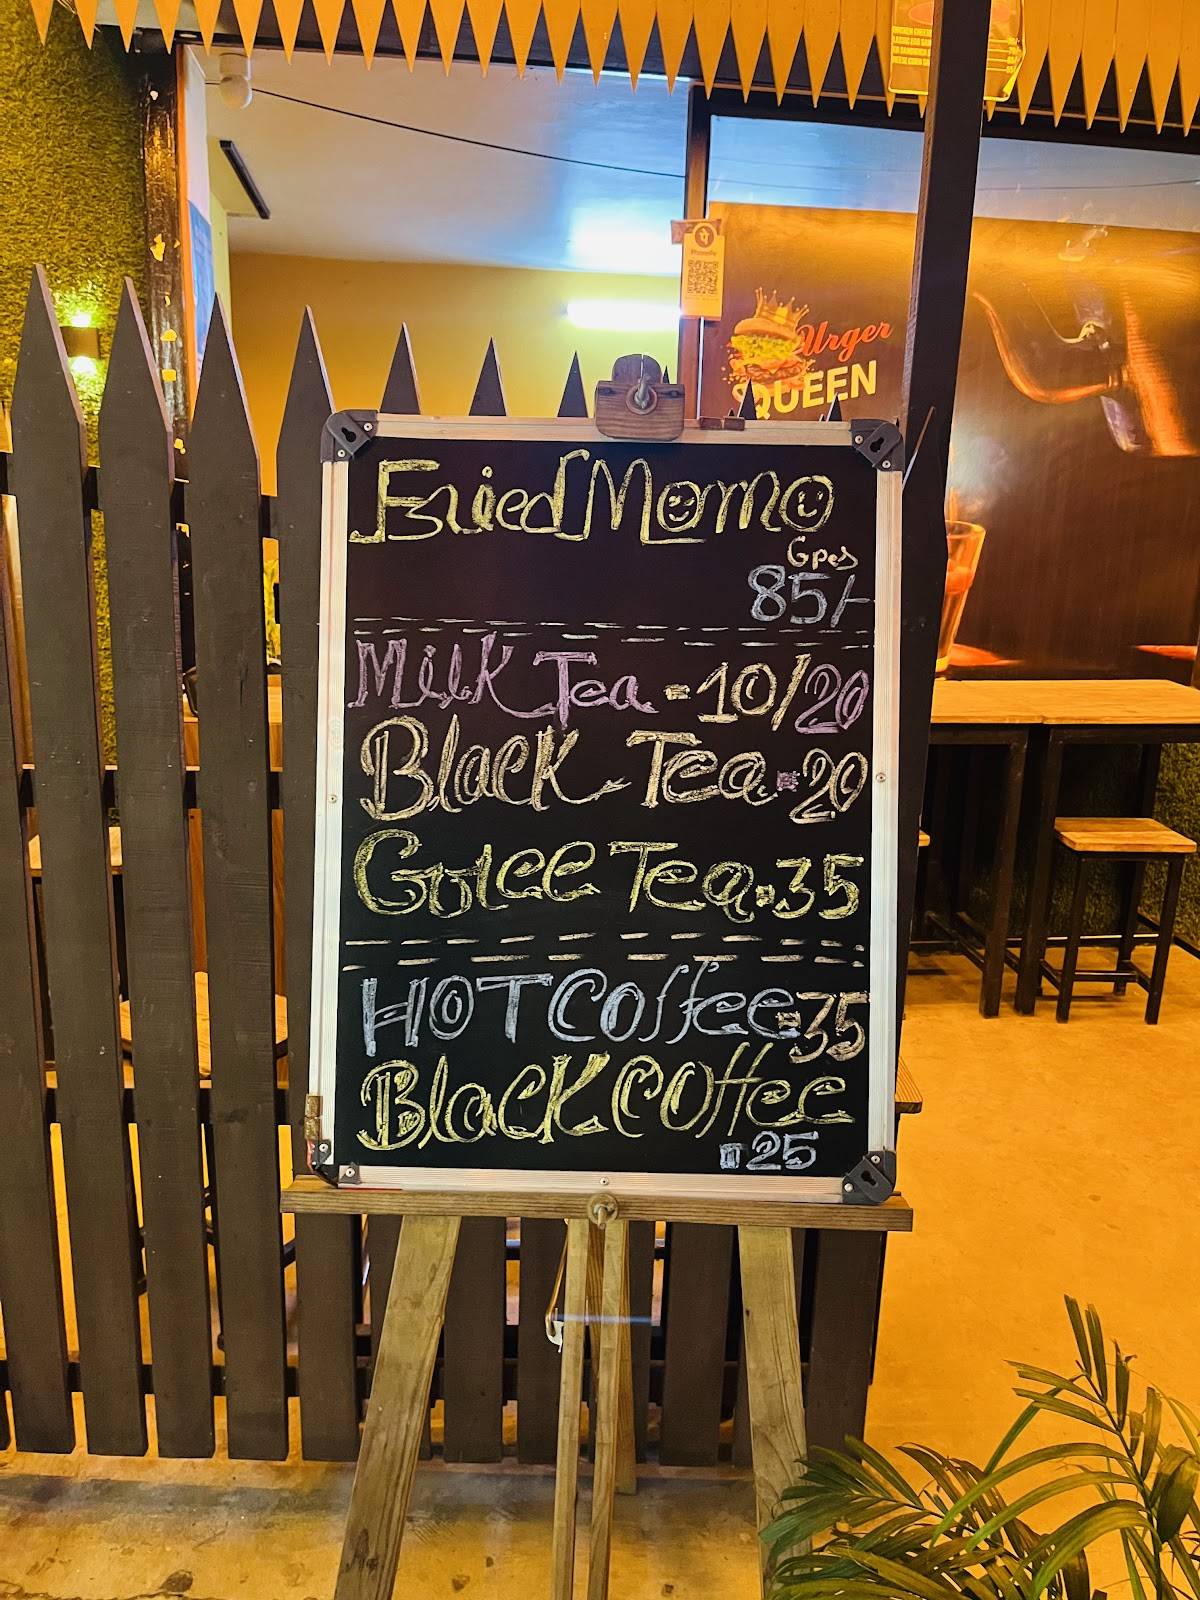 PhonePe
urger
QUEEN
Fried Momo
6pcs
85/-
Milk Tea - 10/20
Black Tea - 20
Golee Tea - 35
HOT Coffee = 35
Black Coffee
= 25